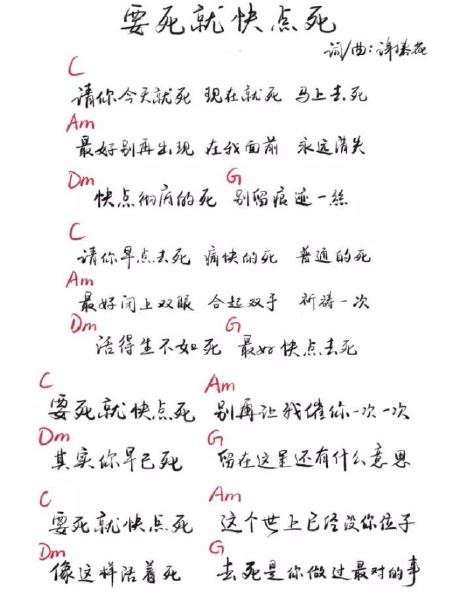 要死就快点死
词/曲:谢春花
C
请你今天就死 现在就死 马上去死
Am
最好别再出现 在我面前 永远消失
Dm G
快点彻底的死 别留痕迹一丝
C
请你早点去死 痛快的死 普通的死
Am
最好闭上双眼 合起双手 祈祷一次
Dm G
活得生不如死 最好快点去死
C Am
要死就快点死 别再让我催你一次一次
Dm G
其实你早已死 留在这里还有什么意思
C Am
要死就快点死 这个世上已经没你位子
Dm G
像这样活着死 去死是你做过最对的事